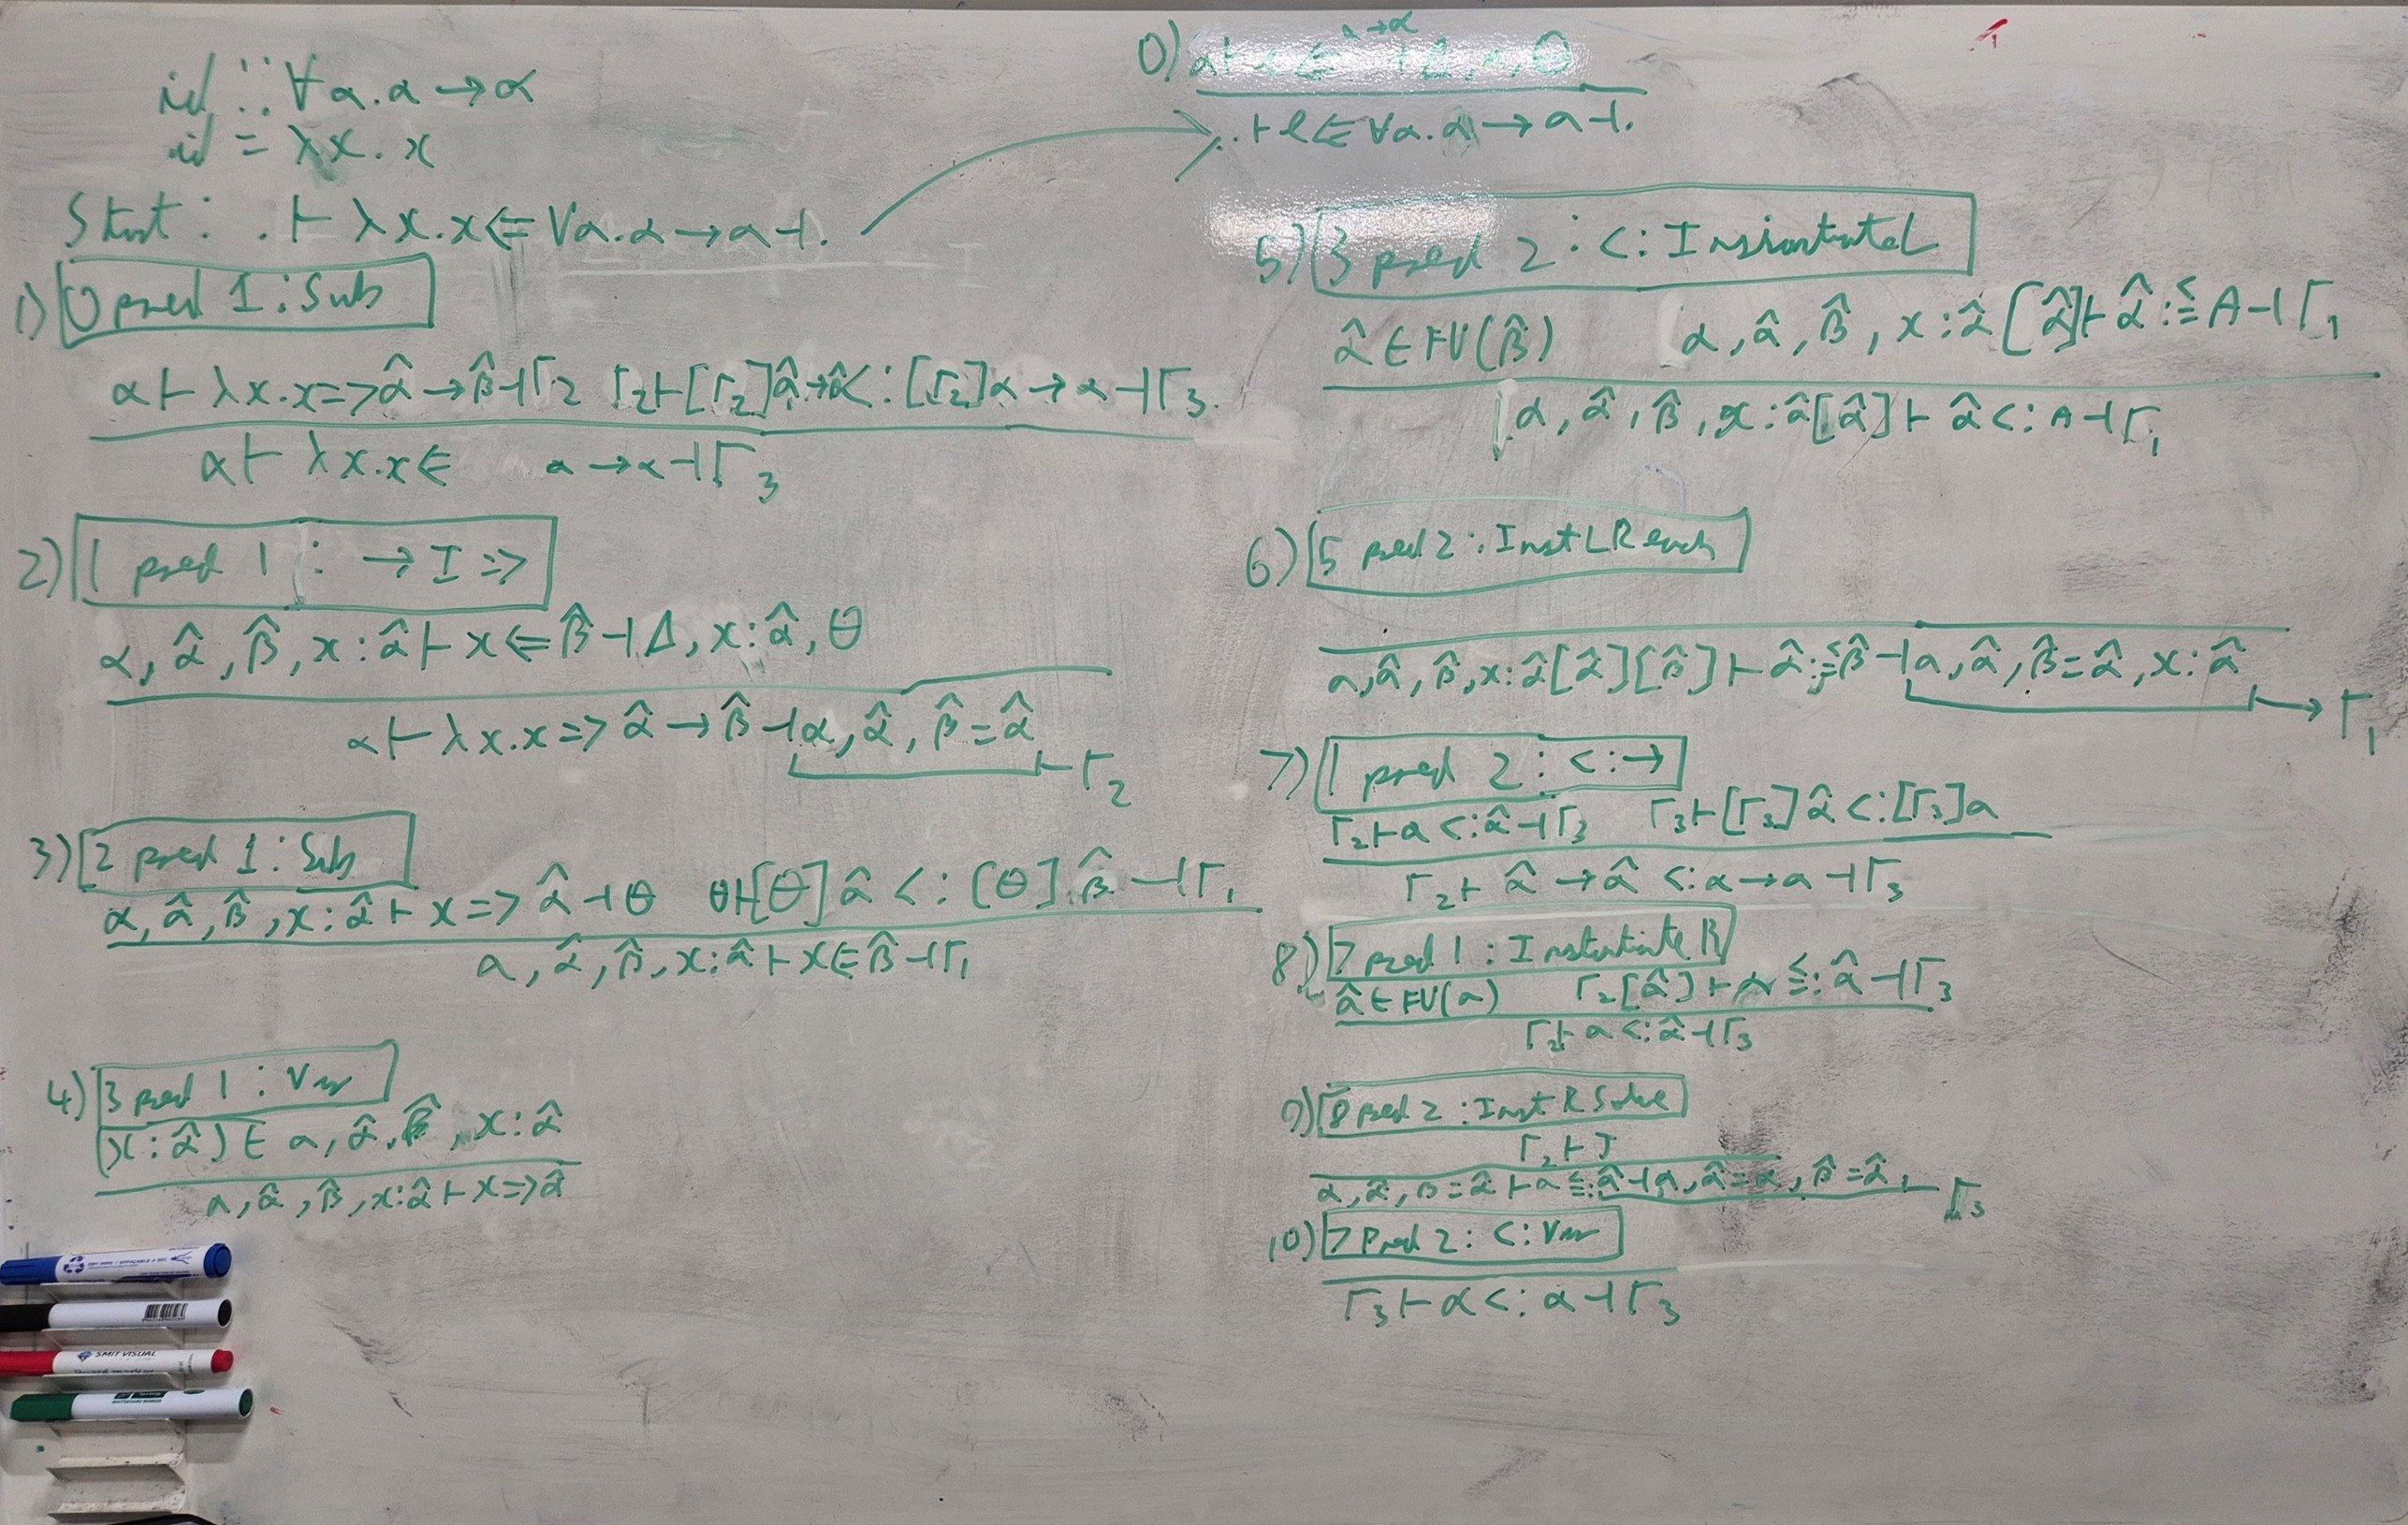 id :: ∀α.α→α
id = λx.x
Start: .⊢ λx.x⇐∀α.α→α⊣.
1) 0 pred 1 : Sub
α⊢ λx.x=>α̂→β̂⊣Γ2 Γ2⊢[Γ2]α̂→α̂<:[Γ2]α→α⊣Γ3
α⊢ λx.x⇐ α→α⊣Γ3
2) 1 pred 1 : →I=>
α, α̂, β̂, x:α̂⊢x⇐β̂⊣Δ, x:α̂, Θ
α⊢λx.x=>α̂→β̂⊣α, α̂, β̂=α̂
Γ2
3) 2 pred 1 : Sub
α, α̂, β̂, x:α̂⊢x=>α̂⊣Θ Θ⊢[Θ]α̂<:[Θ]β̂⊣Γ1
α, α̂, β̂, x:α̂⊢x⇐β̂⊣Γ1
4) 3 pred 1 : Var
(x:α̂)∈α, α̂, β̂, x:α̂
α, α̂, β̂, x:α̂⊢x=>α̂
0)
.⊢e⇐∀α.α→α⊣.
5) 3 pred 2 : <: InstantiateL
α̂∈FV(β̂) α, α̂, β̂, x:α̂[α̂]⊢α̂:≤=A⊣Γ1
α, α̂, β̂, x:α̂[α̂]⊢α̂<:A⊣Γ1
6) 5 pred 2 : InstLReach
α, α̂, β̂, x:α̂[α̂][β̂]⊢α̂:≤=β̂⊣α, α̂, β̂=α̂, x:α̂
Γ1
7) 1 pred 2 : <:→
Γ2⊢α<:α̂⊣Γ3 Γ3⊢[Γ3]α̂<:[Γ3]α
Γ2⊢α̂→α̂<:α→α⊣Γ3
8) 7 pred 1 : InstantiateR
α̂∈FV(α) Γ2[α̂]⊢α≤=:α̂⊣Γ3
Γ2⊢α<:α̂⊣Γ3
9) 8 pred 2 : InstRSolve
Γ2⊢τ
α, α̂, β=α̂⊢α≤=:α̂⊣α, α̂=α, β̂=α̂
Γ3
10) 7 Pred 2 : <:Var
Γ3⊢α<:α⊣Γ3
SMIT VISUAL